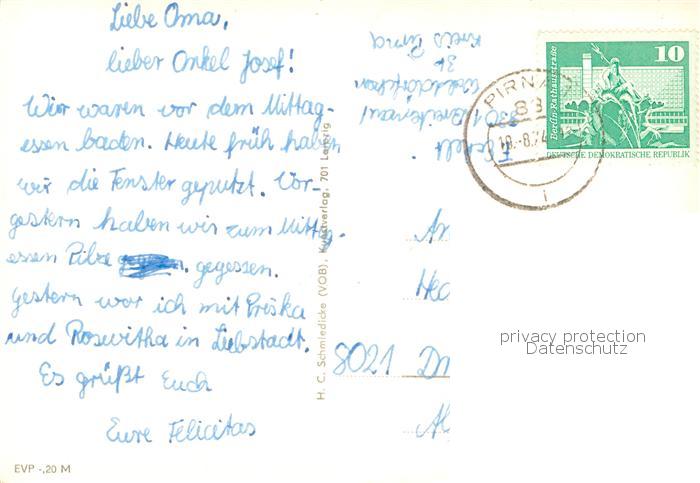 Liebe Oma,
lieber Onkel Josef!
Wir waren vor dem Mittag-
essen baden. Heute früh haben
wir die Fenster geputzt. Vor-
gestern haben wir zum Mittag-
essen Pilze gegessen.
Gestern war ich mit Priska
und Roswitha in Liebstadt.
Es grüßt Euch
Eure Felicitas
EVP -,20 M
H. C. Schmiedicke (VOB), Kunstverlag, 701 Leipzig
8301
Kreis Pirna
PIRNA
10
Berlin-Rathausstraße
DEUTSCHE DEMOKRATISCHE REPUBLIK
8021
privacy protection
Datenschutz